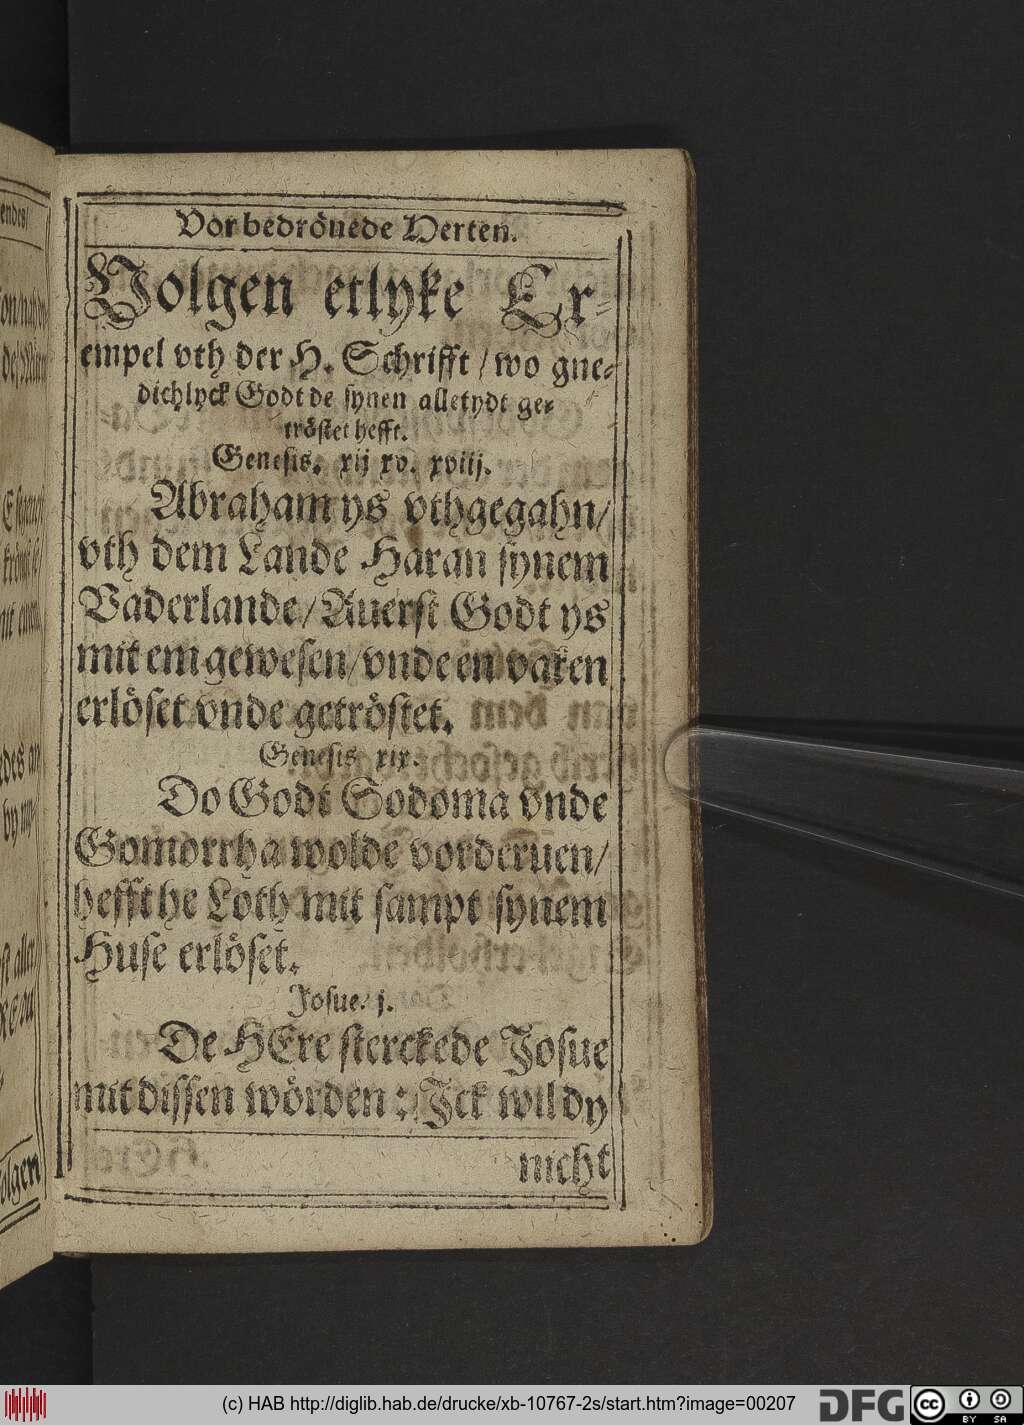 Vor bedröuede Herten.
Volgen etlyke Ex-
empel vth der H. Schrifft / wo gne-
dichlyck Godt de synen alletydt ge-
tröstet hefft.
Genesis. xij xv. xviij.
Abraham ys vthgegahn/
vth dem Lande Haran synem
Vaderlande / Auerst Godt ys
mit em gewesen / vnde en vaken
erlöset vnde getröstet.
Genesis xix.
Do Godt Sodoma vnde
Gomorrha wolde vorderuen/
hefft he Loth mit sampt synem
Huse erlöset.
Josue. j.
De HEre sterckede Josue
mit dissen wörden : Jck wil dy
nicht
(c) HAB http://diglib.hab.de/drucke/xb-10767-2s/start.htm?image=00207
DFG
cc
BY SA